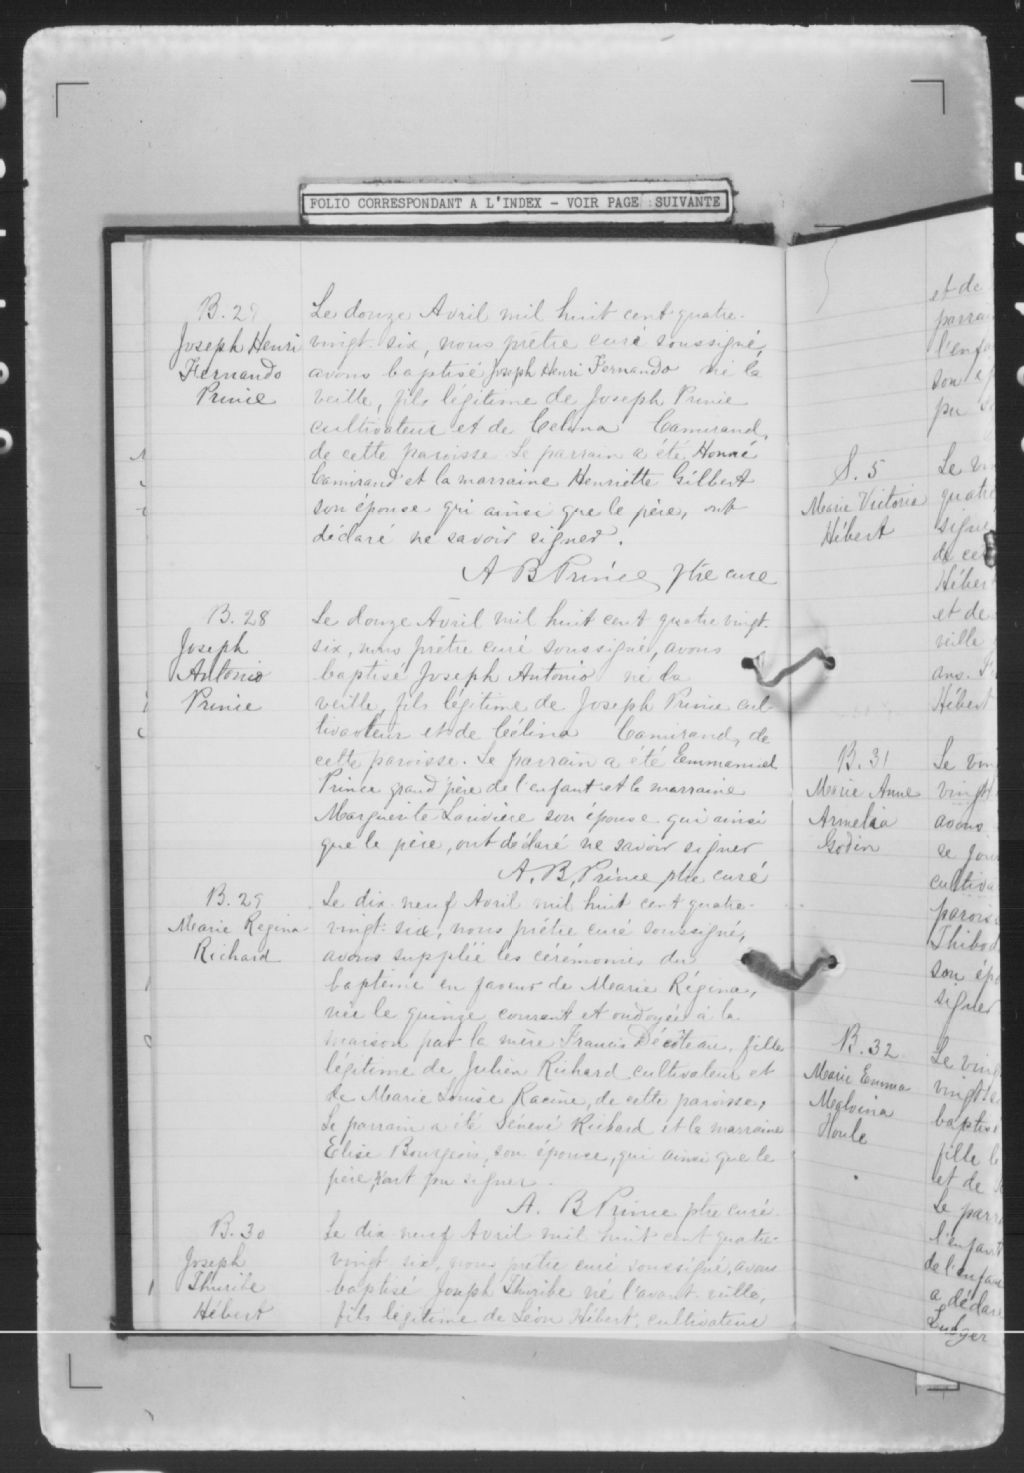 FOLIO CORRESPONDANT A L'INDEX - VOIR PAGE SUIVANTE
B. 27
Joseph Henri
Fernando
Prince
Le douze Avril mil huit cent quatre-
vingt-six, nous prêtre curé soussigné,
avons baptisé Joseph Henri Fernando né la
veille, fils légitime de Joseph Prince
cultivateur et de Celina Camirand,
de cette paroisse. Le parrain a été Honoré
Camirand et la marraine Henriette Gilbert
son épouse qui ainsi que le père, ont
déclaré ne savoir signer.
A B Prince ptre curé
B. 28
Joseph
Antonio
Prince
Le douze Avril mil huit cent quatre vingt-
six, nous prêtre curé soussigné, avons
baptisé Joseph Antonio né la
veille, fils légitime de Joseph Prince cul-
tivateur et de Célina Camirand, de
cette paroisse. Le parrain a été Emmanuel
Prince grand'père de l'enfant et la marraine
Marguerite son épouse qui ainsi
que le père, ont déclaré ne savoir signer
A. B. Prince ptre curé
B. 29
Marie Regina
Richard
Le dix-neuf Avril mil huit cent quatre-
vingt-six, nous prêtre curé soussigné,
avons supplié les cérémonies du
baptême en faveur de Marie Régina,
née le quinze courant et ondoyée à la
maison par la mère Francis Décoteau, fille
légitime de Julien Richard cultivateur et
de Marie Louise Racine, de cette paroisse,
Le parrain a été Richard et la marraine
Elise Bourgeois, son épouse, qui ainsi que le
père, n'ont pu signer.
A. B Prince ptre curé
B. 30
Joseph
Thuribe
Hébert
Le dix-neuf Avril mil huit cent quatre-
vingt six, nous prêtre curé soussigné, avons
baptisé Joseph Thuribe né l'avant-veille,
fils légitime de Léon Hébert, cultivateur
et de
son
S. 5
Marie Victoria
Hébert
et de
veille
ans.
Hébert
B. 31
Marie Anne
Armelia
Godin
avons
son
signer
B. 32
Marie Emma
Malvina
Houle
fille
et de
Le
a